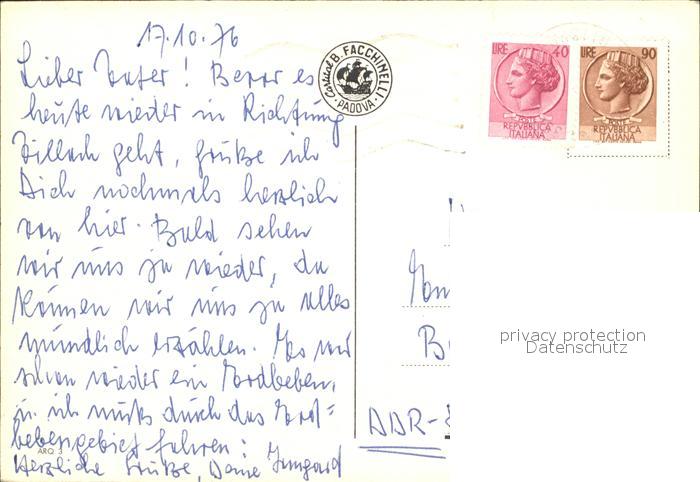 17.10.76
Lieber Vater! Bevor es
heute wieder in Richtung
Villach geht, grüße ich
Dich nochmals herzlich
von hier. Bald sehen
wir uns ja wieder, da
können wir uns ja alles
mündlich erzählen. Es war
schon wieder ein Erdbeben,
u. ich muß durch das Erd=
bebengebiet fahren!
Herzliche Grüße, Deine Irmgard
ARQ 3
Cartol. B. FACCHINELLI · PADOVA ·
LIRE 40
POSTE
REPVBBLICA
ITALIANA
LIRE 90
POSTE
REPVBBLICA
ITALIANA
DDR-
privacy protection
Datenschutz